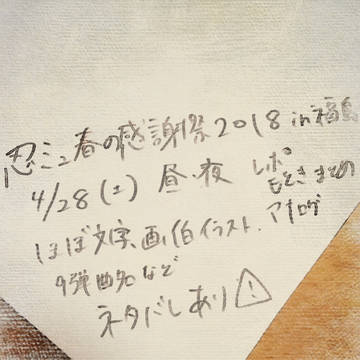 忍ミュ春の感謝祭2018 in 福島
4/28(土) 昼・夜 レポ
もどきまとめ
アナログ
ほぼ文字、画伯イラスト、
9弾曲名など
ネタバレあり⚠